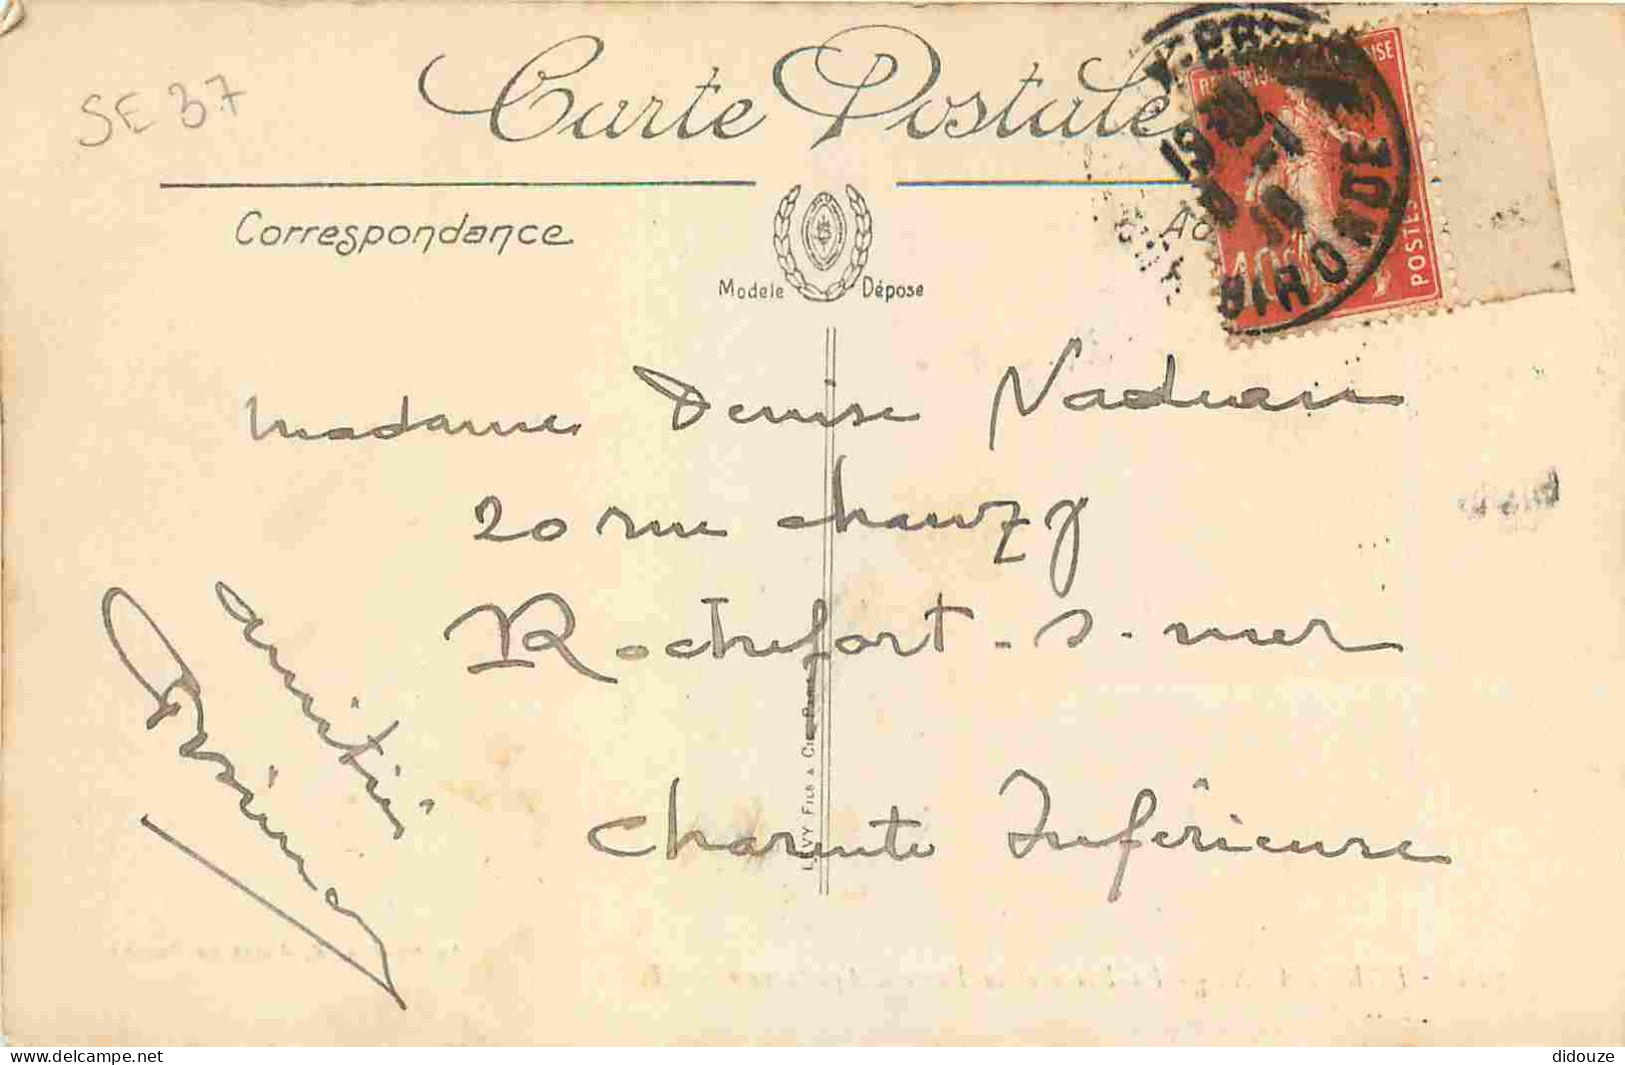 SE 37
Carte Postale
Correspondance
Modele Déposé
RÉPUBLIQUE FRANÇAISE
POSTES
10c
GIRONDE
madame Denise Naduain
20 rue chanzy
Rochefort-s-mer
Charente Inférieure
amitiés
LÉVY FILS & Cie PARIS
didouze
delcampe.net